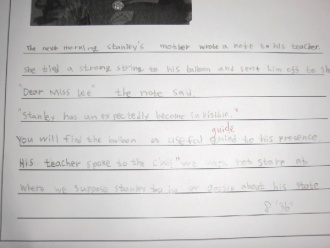 The next morning Stanley's mother wrote a note to his teacher.
She tied a strong string to his baloon and sent him off to
"Dear Miss Lee" the note said
"Stanley has unexpectedly become invisible."
guide
You will find the baloon a useful to his presence
His teacher spoke to the class "We not stare at
where we suppose Stanley to be or about his state